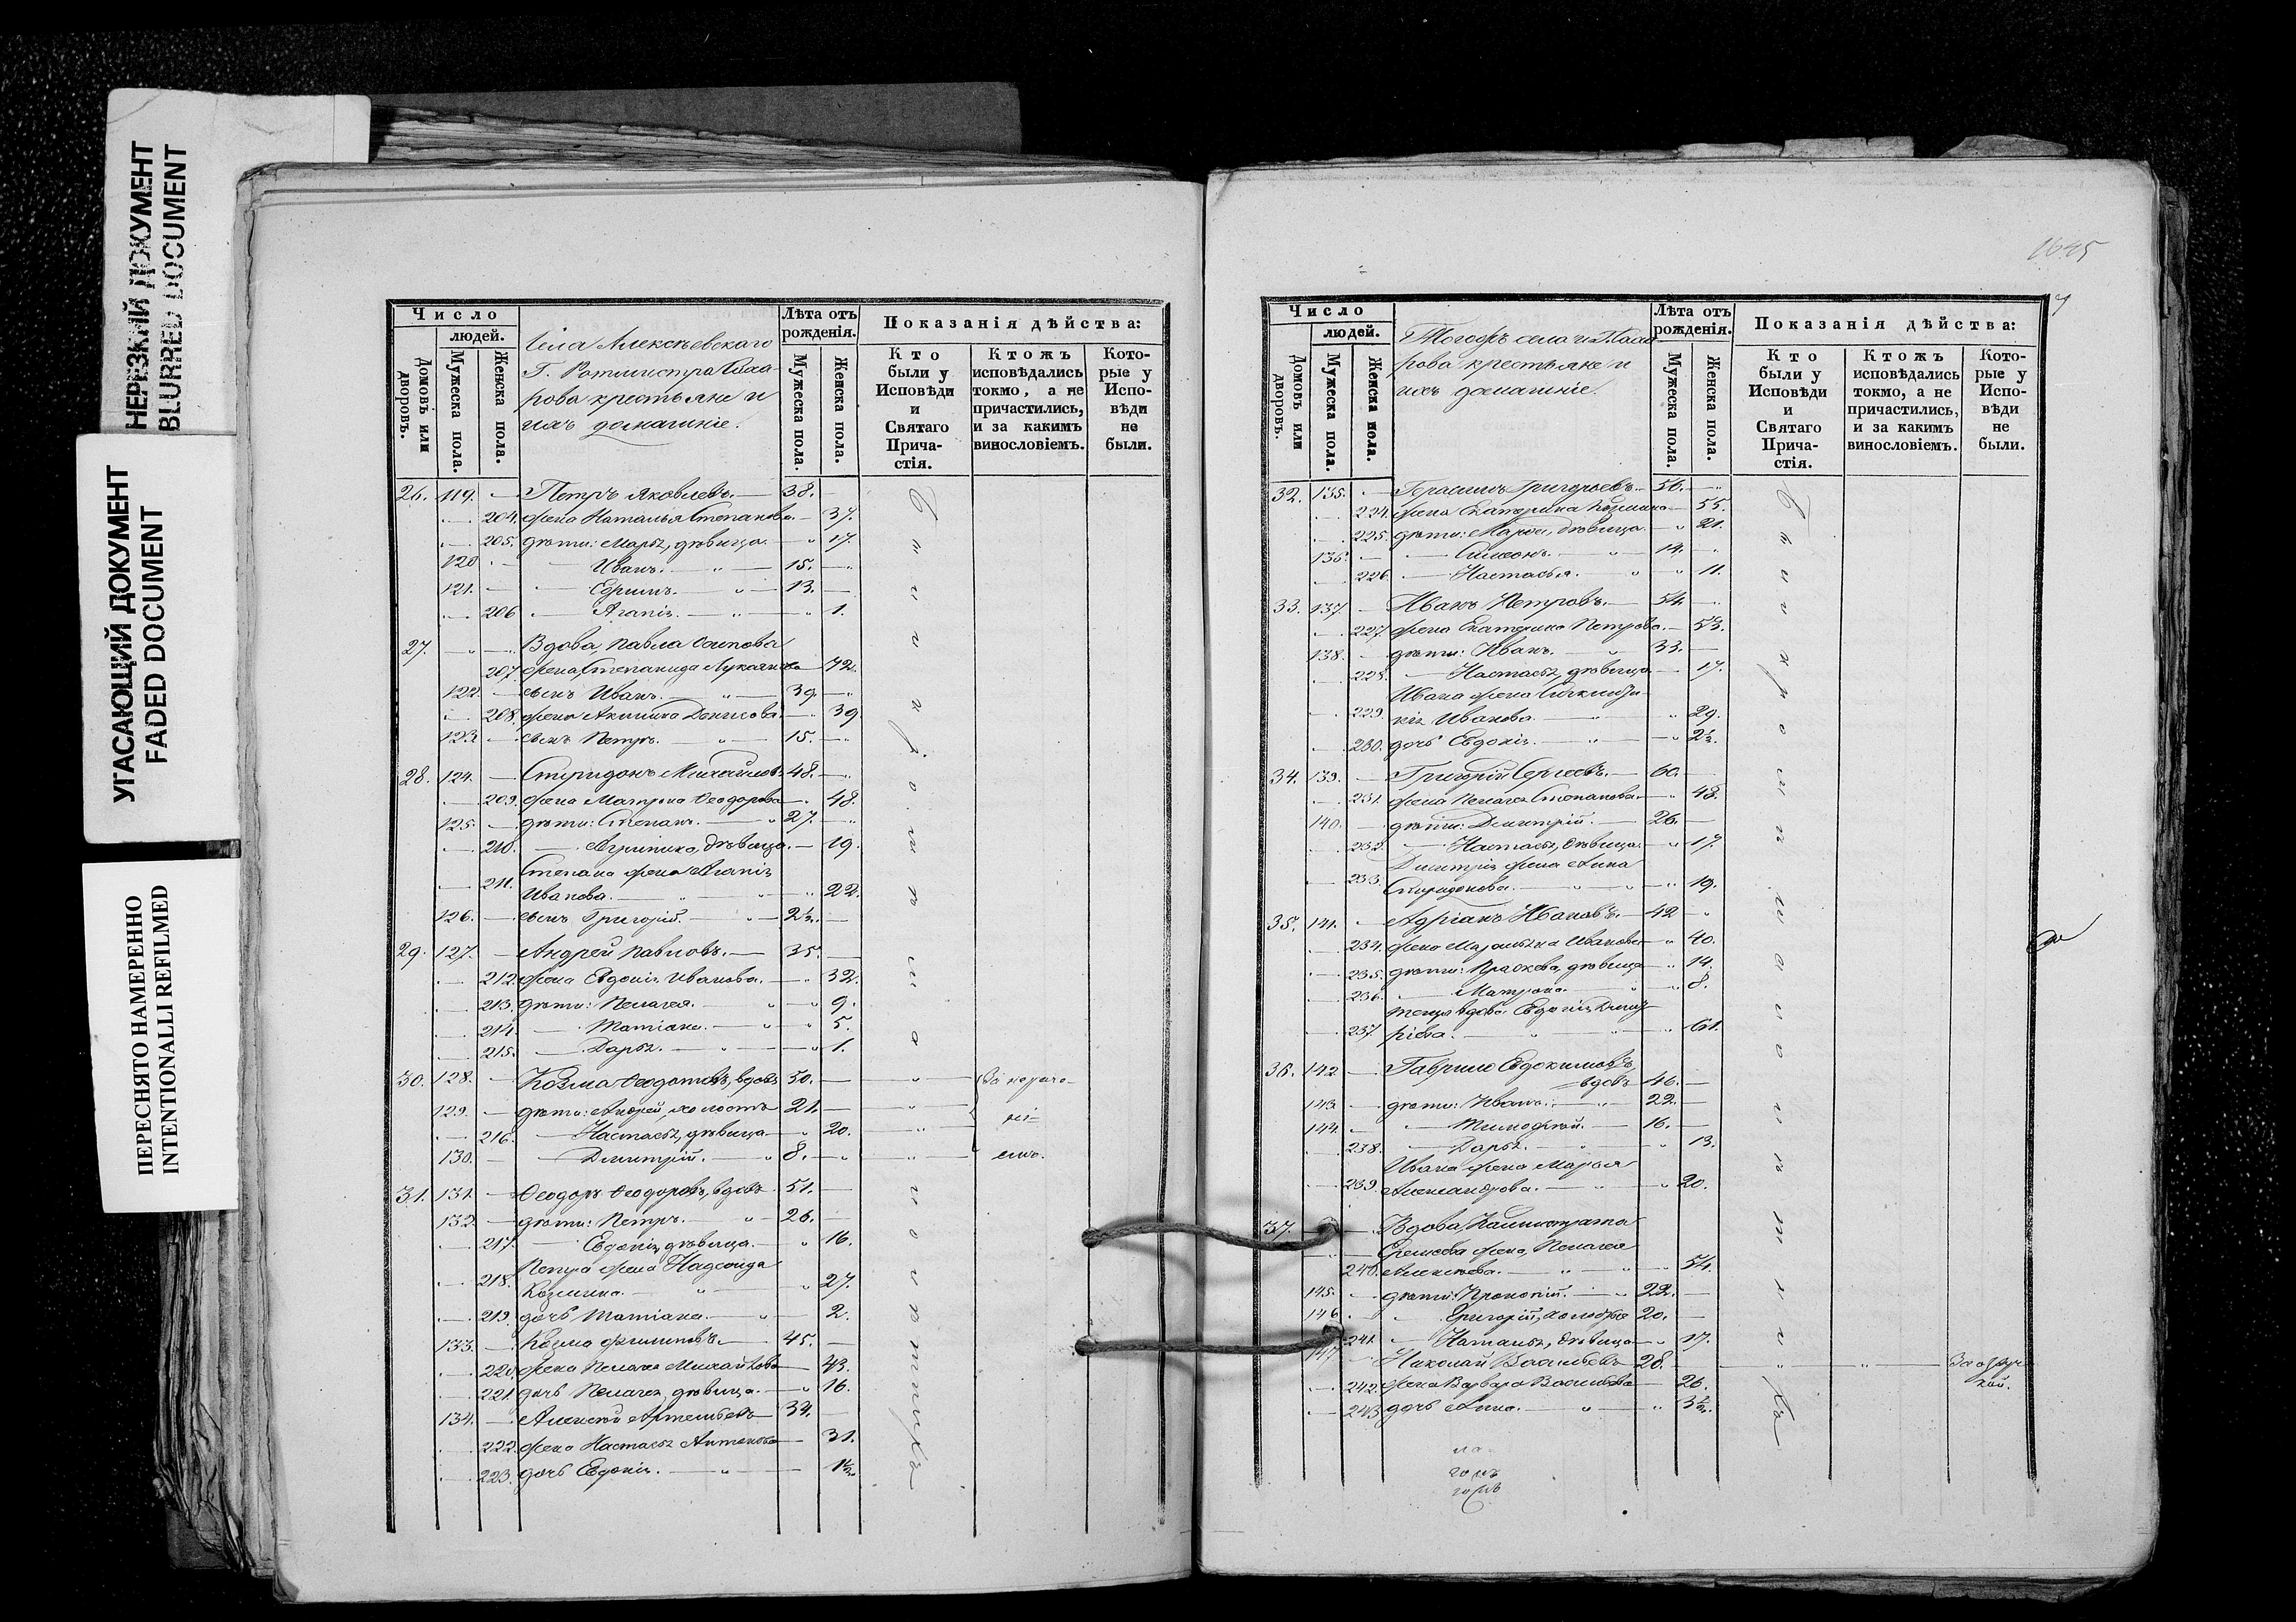 НЕРЕЗКИЙ ДОКУМЕНТ
BLURRED DOCUMENT
УГАСАЮЩИЙ ДОКУМЕНТ
FADED DOCUMENT
ПЕРЕСНЯТО НАМЕРЕННО
INTENTIONALLI REFILMED
Число
людей.
Домовъ или дворовъ.
Мужеска пола.
Женска пола.
Села Алексѣевскаго
Г. Ротмистра
рова крестьяне и
ихъ домашніе.
Лѣта отъ рожденія.
Мужеска пола.
Женска пола.
Показанія дѣйства:
Кто были у Исповѣди и Святаго Прича-стія.
Ктожъ исповѣдались токмо, а не причастились, и за какимъ винословіемъ.
Кото-рые у Испо-вѣди не были.
26. 119. Петръ Яковлевъ. 38.
204. жена Наталья Степанова. 37.
205. дѣти: Марья, дѣвица. 17.
120. Иванъ. 15.
121. Ефимъ. 13.
206 Агапія. 1.
27. Вдова, Павла Осипова
207. жена, Степанида Лукаянова 72.
122. сынъ Иванъ. 39.
208. жена Акилина Денисова. 39.
123. сынъ Петръ. 15.
28. 124. Спиридонъ Михайловъ 48.
209. жена Матрона Ѳеодорова 48.
125. дѣти: Степанъ. 27.
210. Агрипина, дѣвица. 19.
Степана жена Агапія
211. Иванова. 22.
126. сынъ Григорій. 2½.
29. 127. Андрей Павловъ. 35.
212. жена Евдокія Иванова. 32.
213. дѣти: Пелагея. 9.
214. Татіана. 5.
215. Дарья. 1.
30. 128. Козма Ѳедотовъ, вдовъ 50.
129. дѣти: Андрей, холостъ 21.
216. Настасья, дѣвица 20.
130. Димитрій. 8.
31. 131. Ѳеодоръ Ѳеодоровъ, вдовъ 51.
132. дѣти: Петръ. 26.
217. Евдокія, дѣвица. 16.
Петра жена Надежда
218. Козмина. 27.
219. дочь Татіана. 2.
133. Козма Филиповъ. 45.
220. жена Пелагея Михайлова 43.
221. дочь Пелагея, дѣвица. 16.
134. Алексей Артемьевъ 34.
222. жена Настасья Антонова 31.
223. дочь Евдокія. 1½.
1645
Число
людей.
Домовъ или дворовъ.
Мужеска пола.
Женска пола.
Тогожъ села и
рова крестьяне и
ихъ домашніе.
Лѣта отъ рожденія.
Мужеска пола.
Женска пола.
Показанія дѣйства:
Кто были у Исповѣди и Святаго Прича-стія.
Ктожъ исповѣдались токмо, а не причастились, и за какимъ винословіемъ.
Кото-рые у Испо-вѣди не были.
32. 135. Герасимъ Григорьевъ 56.
224. жена Екатерина Козмина 55.
225. дѣти: Марья, дѣвица. 21.
136. Симеонъ. 14.
226. Настасья. 11.
33. 137. Иванъ Петровъ. 54.
227. жена Екатерина Петрова. 53.
138. дѣти: Иванъ. 33.
228. Настасья, дѣвица 17.
Ивана жена
229. Иванова. 29.
230. дочь Евдокія. 2½.
34. 139. Григорій Сергеевъ. 60.
231. жена Пелагея Степанова 48.
140. дѣти: Димитрій. 26.
232. Настасья, дѣвица. 17.
Димитрія жена Анна
233. Спиридонова. 19.
35. 141. Адріанъ Ивановъ. 42
234. жена Марья Иванова 40.
235. дѣти: Прасковья, дѣвица 14.
236. Матрона. 8.
теща вдова Евдокія Димит-
237. ріева. 61.
36. 142 Гаврило Евдокимовъ,
вдовъ 46.
143. дѣти: Иванъ. 22.
144. Тимофѣй. 16.
238. Дарья. 13.
Ивана жена Марья
239. Александрова. 20.
37. Вдова, Калистрата
жена, Пелагея
240. Алексѣева. 54.
145. дѣти: Прокопій. 22.
146. Григорій, холостъ 20.
241. Наталья, дѣвица 17.
147 Николай Васильевъ 28.
242. жена Варвара Васильева 26.
243 дочь Анна. 3½.